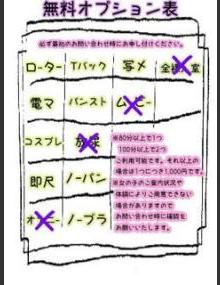 無料オプション表
必ず最初のお問い合わせ時にお申し付けください。
ローター Tバック 写メ
電マ パンスト
コスプレ
即尺 ノーパン
ノーブラ
※80分以上で1つ
100分以上で2つ
ご利用可能です。それ以上の
場合は1つにつき1,000円です。
※女の子のご案内状況や
体調によりご用意できない
場合がありますので
お問い合わせ時に確認を
お願いいたします。